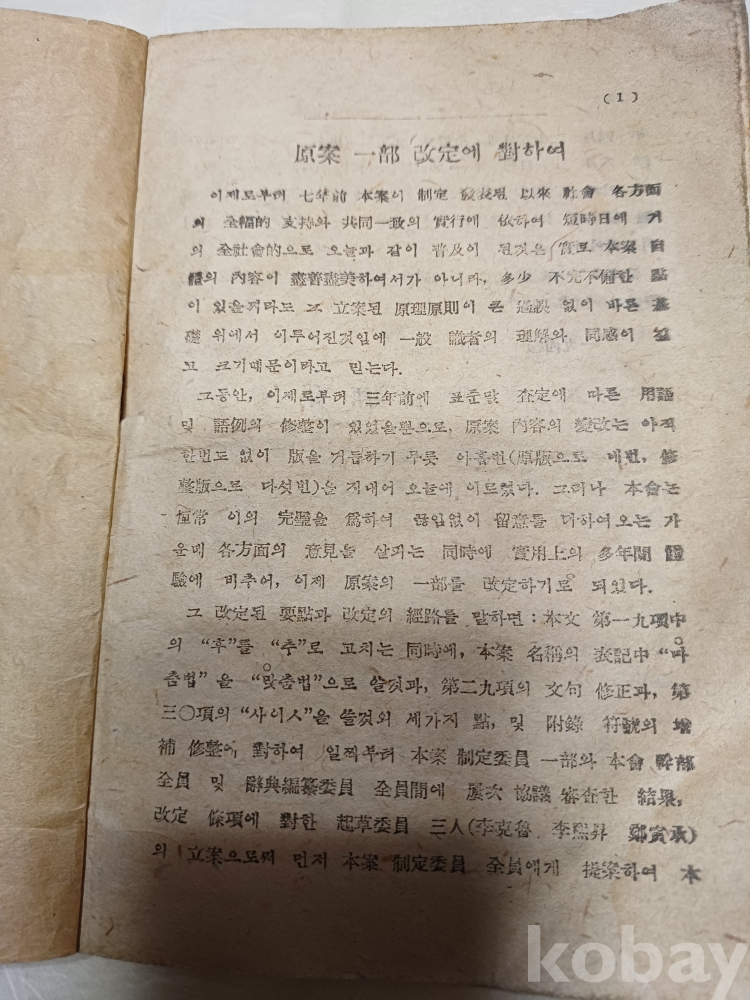 (1)
原案 一部 改定에 對하여
이제로부터 七年前 本案이 制定 發表된 以來 社會 各方面
의 全幅的 支持와 共同一致의 實行에 依하여 短時日에 거
의 全社會的으로 오늘과 같이 普及이 된것은 實로 本案 自
體의 內容이 盡善盡美하여서가 아니라, 多少 不完不備한 點
이 있을지라도 그 立案된 原理原則이 큰 過誤 없이 바른 基
礎 위에서 이루어진것임에 一般 識者의 理解와 同感이 깊
고 크기때문이라고 믿는다.
그동안, 이제로부터 三年前에 표준말 査定에 따른 用語
및 語例의 修整이 있었을뿐으로, 原案 內容의 變改는 아직
한번도 없이 版을 거듭하기 무릇 아홉번(原版으로 네번, 修
整版으로 다섯번)을 지내어 오늘에 이르렀다. 그러나 本會는
恒常 이의 完璧을 爲하여 끊임없이 留意를 더하여오는 가
운데 各方面의 意見을 살피는 同時에 實用上의 多年間 體
驗에 비추어, 이제 原案의 一部를 改定하기로 되었다.
그 改定된 要點과 改定의 經路를 말하면: 本文 第一九項中
의 "후"를 "추"로 고치는 同時에, 本案 名稱의 表記中 "마
춤법"을 "맞춤법"으로 쓸것과, 第二九項의 文句 修正과, 第
三〇項의 "사이ㅅ"을 쓸것의 세가지 點, 및 附錄 符號의 增
補 修整에 對하여 일찍부터 本案 制定委員 一部와 本會 幹部
全員 및 辭典編纂委員 全員間에 屢次 協議 審査한 結果,
改定 條項에 對한 起草委員 三人(李克魯 李熙昇 鄭寅承)
의 立案으로써 먼저 本案 制定委員 全員에게 提案하여 本
kobay